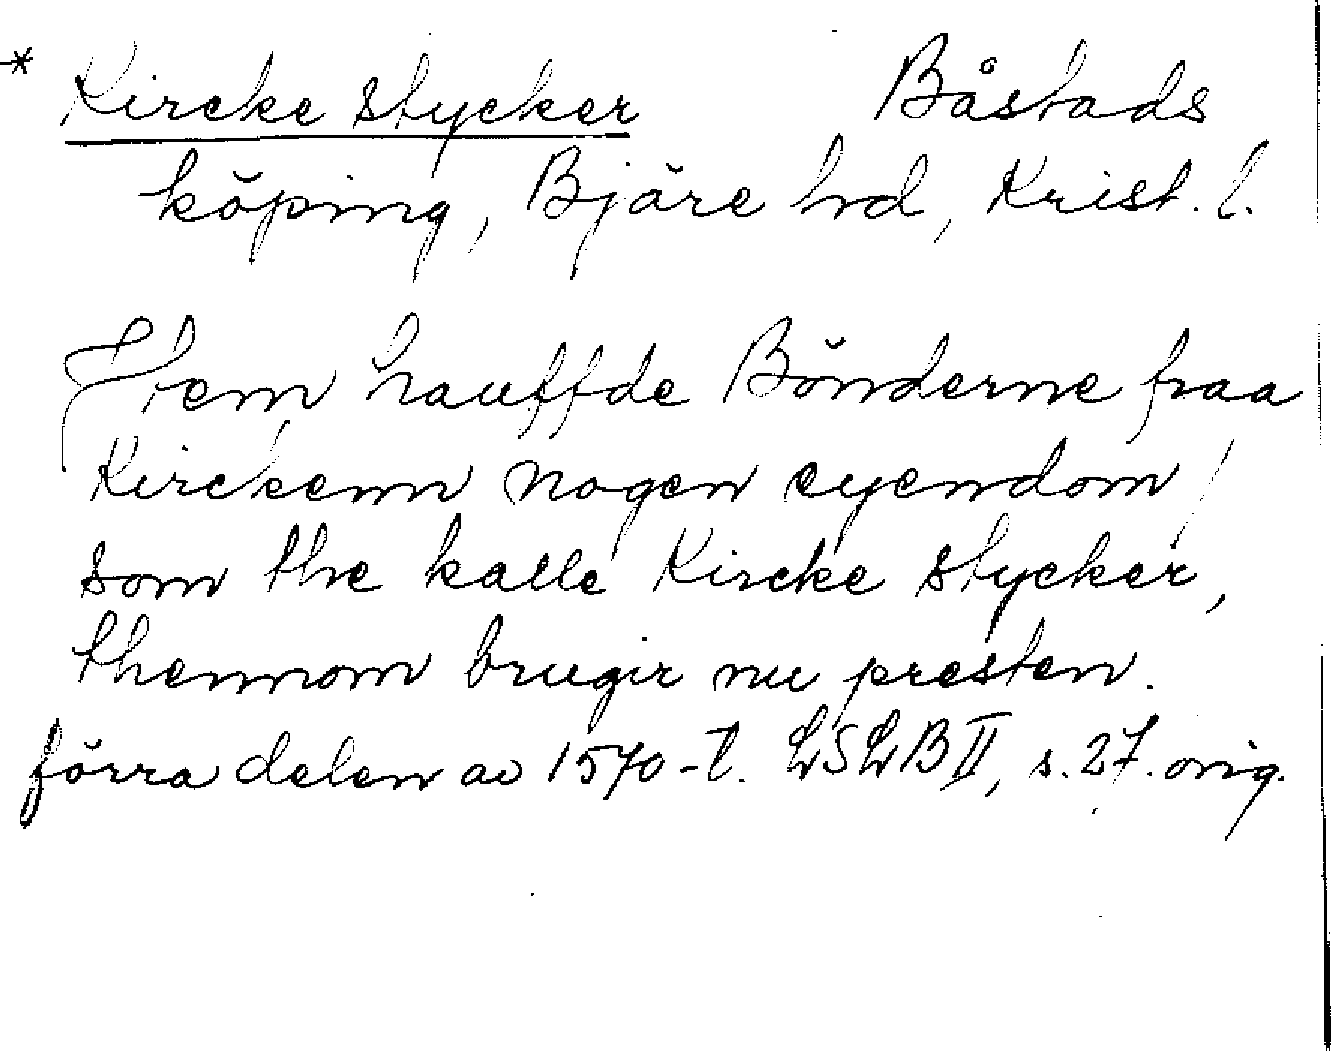 * Kircke stycker Båstads
köping, Bjäre hd, Krist. l.
Item hauffde Bönderne fraa
Kirckenn nogen eyendom /
som the kalle Kircke stycker,
thennom brugir nu presten.
förra delen av 1570-t. LSLB II, s. 27. orig.